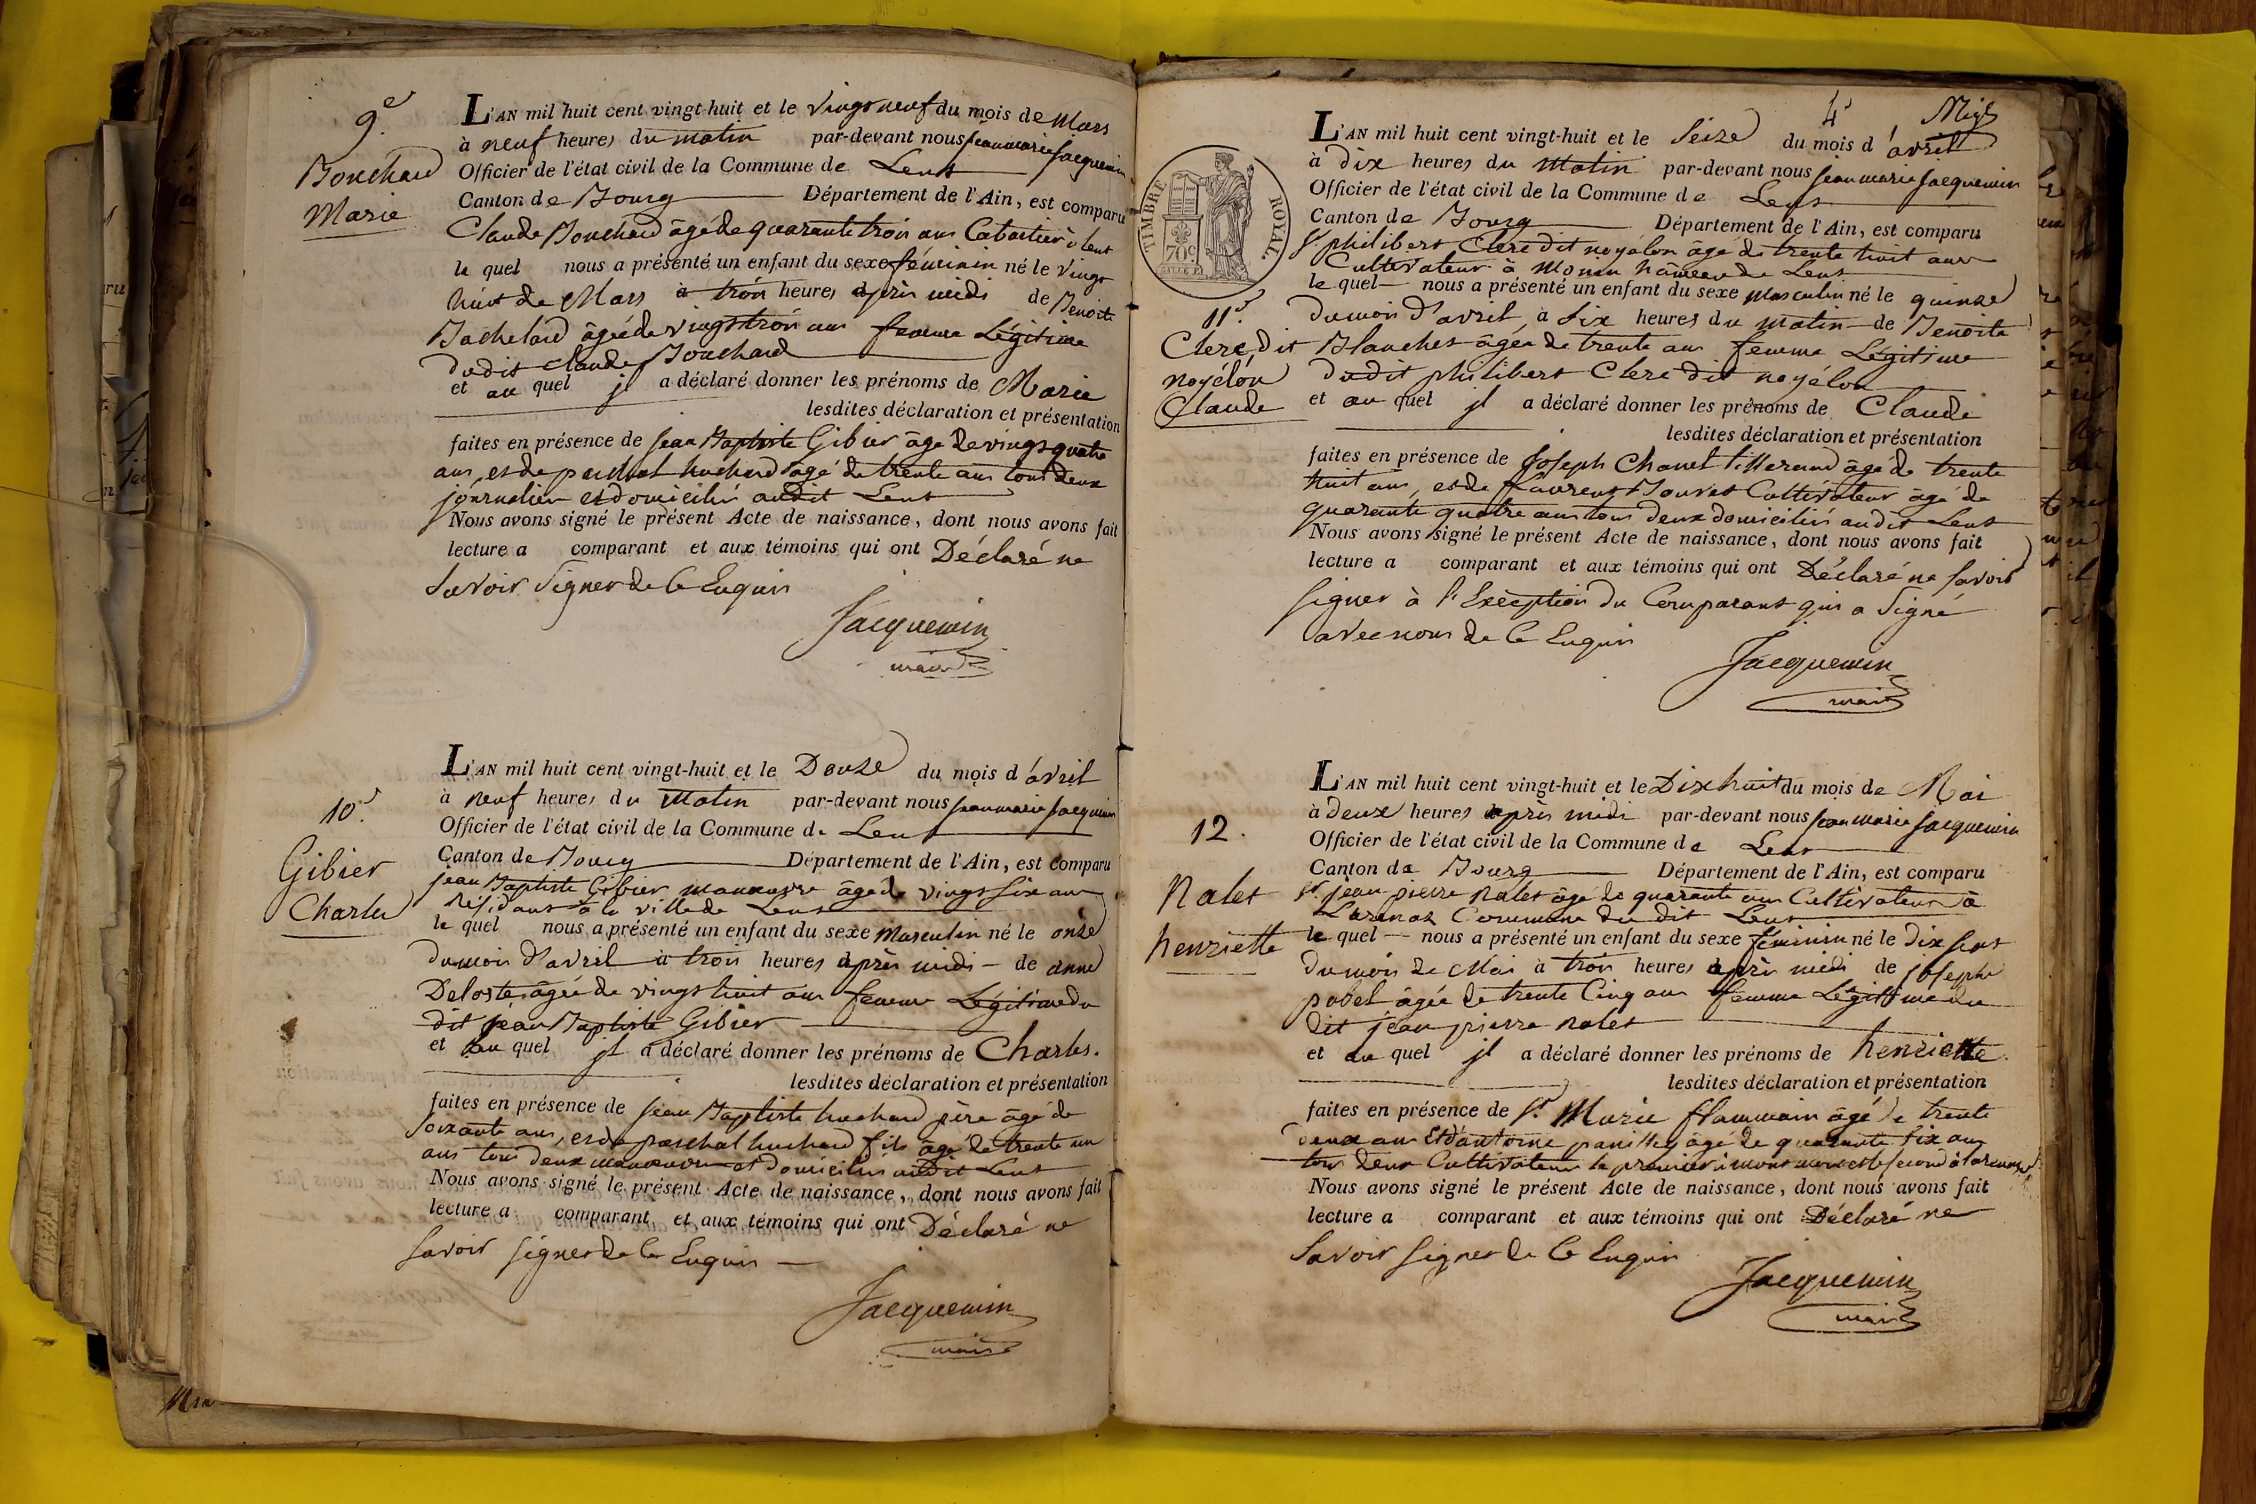 9e
Bouchard
Marie
L'AN mil huit cent vingt-huit et le vingt neuf du mois de Mars
à neuf heures du matin par-devant nous jean marie jacquemin
Officier de l'état civil de la Commune de Lent
Canton de Bourg Département de l'Ain, est comparu
Claude Bouchard âgé de quarante trois ans Cabartier à lent
le quel nous a présenté un enfant du sexe féminin né le vingt
huit de Mars à trois heures après midi de Benoite
Bachelard âgée de vingt trois ans femme Légitime
dudit claude Bouchard
et au quel jl a déclaré donner les prénoms de Marie
lesdites déclaration et présentation
faites en présence de jean Baptiste Gibier âgé de vingt quatre
ans, et de paschal huchard âgé de trente ans tous deux
journalier et domiciliés audit Lent
Nous avons signé le présent Acte de naissance, dont nous avons fait
lecture a comparant et aux témoins qui ont Déclaré ne
savoir signer de Ce Enquis
Jacquemin
maire
10e
Gibier
Charles
L'AN mil huit cent vingt-huit et le Douze du mois d'avril
à neuf heures du matin par-devant nous jean marie jacquemin
Officier de l'état civil de la Commune de Lent
Canton de Bourg Département de l'Ain, est comparu
jean Baptiste Gibier manoeuvre âgé de vingt six ans
Résidant à la ville de Lent
le quel nous a présenté un enfant du sexe Masculin né le onze
du mois d'avril à trois heures après midi de anne
Deloste âgée de vingt huit ans femme Légitime du
dit jean Baptiste Gibier
et au quel jl a déclaré donner les prénoms de Charles.
lesdites déclaration et présentation
faites en présence de jean Baptiste huchard père âgé de
soixante ans, et de paschal huchard fils âgé de trente un
ans tous deux manoeuvre et domiciliés audit Lent
Nous avons signé le présent Acte de naissance, dont nous avons fait
lecture a comparant et aux témoins qui ont Déclaré ne
savoir signer de Ce Enquis
Jacquemin
maire
4e
TIMBRE ROYAL
70c.
11e
Clerc dit
noyélon
Claude
L'AN mil huit cent vingt-huit et le seize du mois d'avril
à dix heures du Matin par-devant nous jean marie jacquemin
Officier de l'état civil de la Commune de Lent
Canton de Bourg Département de l'Ain, est comparu
Sr philibert Clerc dit noyélon âgé de trente huit ans
Cultivateur à hameau de Lent
le quel nous a présenté un enfant du sexe masculin né le quinze
du mois d'avril à six heures du matin de Benoite
Blanchet âgée de trente ans femme Légitime
dudit philibert Clerc dit noyélon
et au quel jl a déclaré donner les prénoms de Claude
lesdites déclaration et présentation
faites en présence de Joseph Chanel tisserand âgé de trente
huit ans, et de Laurent Bouvet Cultivateur âgé de
quarante quatre ans tous deux domiciliés audit Lent
Nous avons signé le présent Acte de naissance, dont nous avons fait
lecture a comparant et aux témoins qui ont Déclaré ne savoir
signer à l'Exception du Comparant qui a signé
avec nous de Ce Enquis
Jacquemin
maire
12.
Nalet
henriette
L'AN mil huit cent vingt-huit et le Dix huit du mois de Mai
à deux heures après midi par-devant nous jean marie jacquemin
Officier de l'état civil de la Commune de Lent
Canton de Bourg Département de l'Ain, est comparu
Sr jean pierre Nalet âgé de quarante ans Cultivateur à
Commune du dit Lent
le quel nous a présenté un enfant du sexe féminin né le dix sept
du mois de Mai à trois heures après midi de josephe
pobel âgée de trente Cinq ans femme Légitime du
dit jean pierre Nalet
et au quel jl a déclaré donner les prénoms de henriette
lesdites déclaration et présentation
faites en présence de Sr Marie flammain âgé de trente
deux ans Et d'antoine âgé de quarante six ans
tous deux Cultivateur le premier à et le second à
Nous avons signé le présent Acte de naissance, dont nous avons fait
lecture a comparant et aux témoins qui ont Déclaré ne
savoir signer de Ce Enquis
Jacquemin
maire